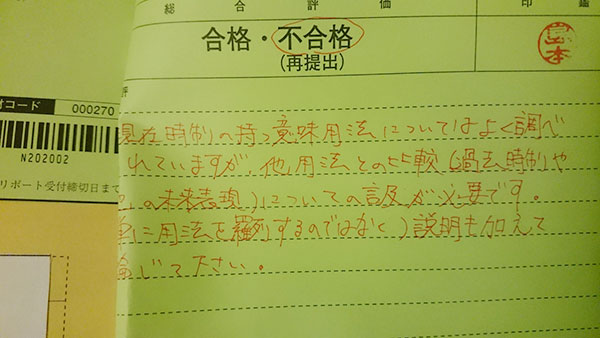 総合評価
印鑑
合格・不合格
(再提出)
評
コード
000270
N202002
リポート受付締切日まで
現在時制の持つ意味用法についてはよく調べ
れていますが、他用法との比較(過去時制や
の未来表現)についての言及が必要です。
単に用法を羅列するのではなく)説明も加えて
論じて下さい。